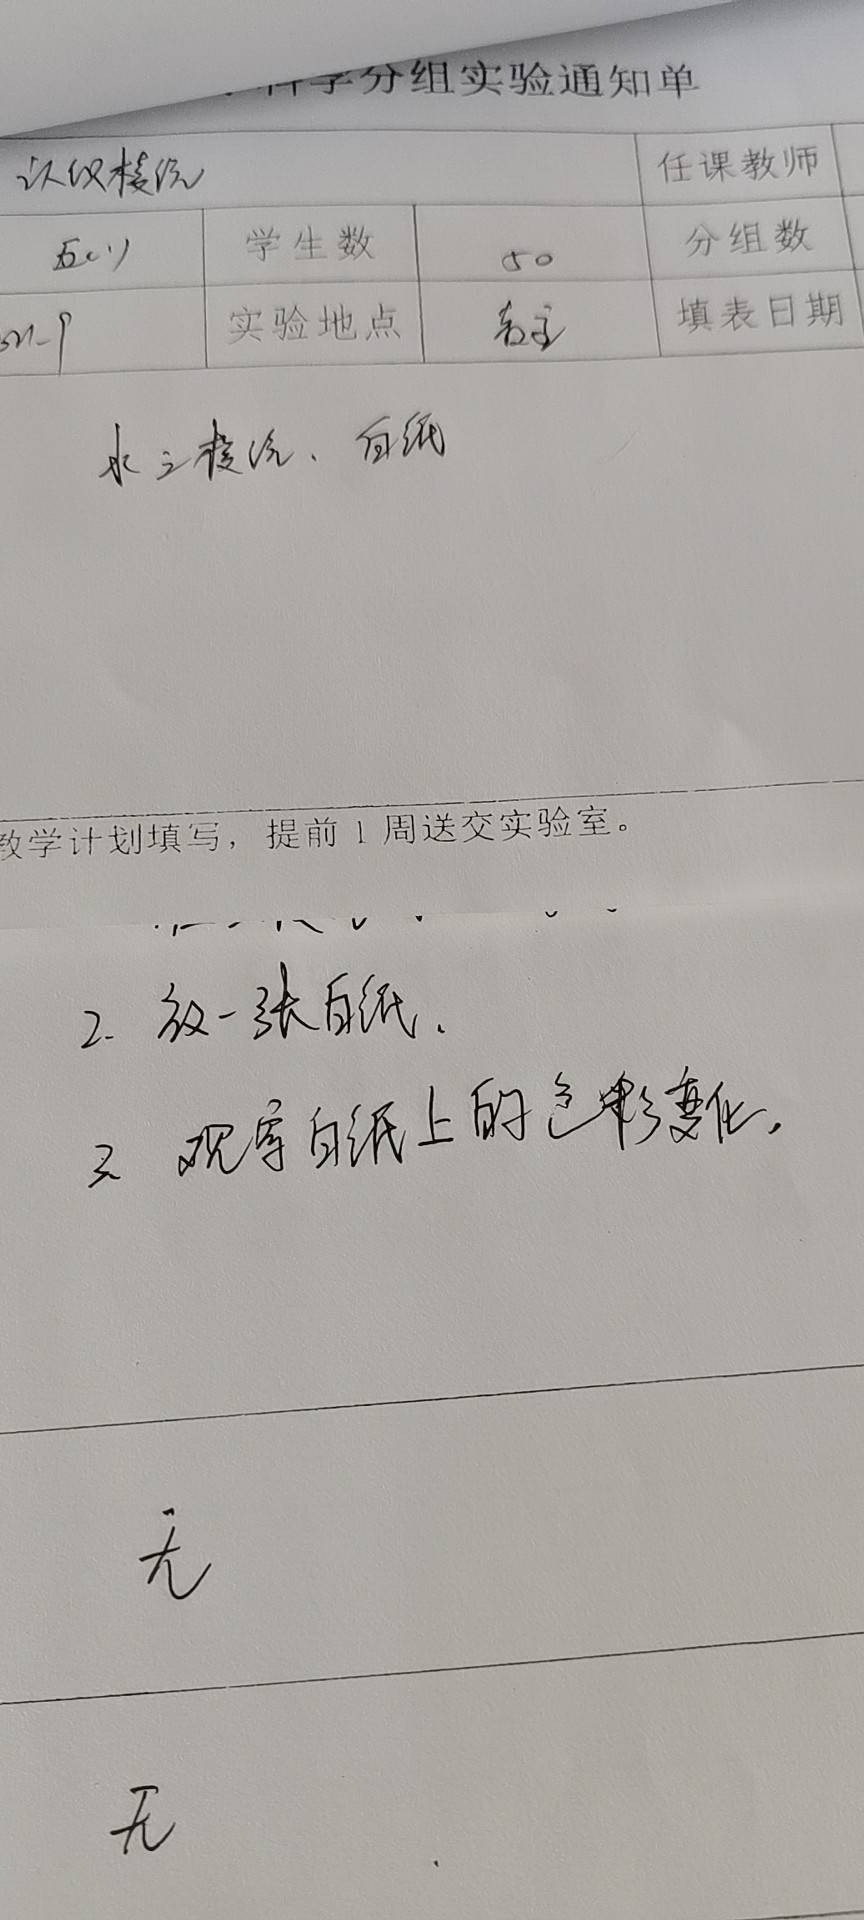 科学分组实验通知单
认识棱镜 任课教师
五(1) 学生数 50 分组数
实验地点 填表日期
水三棱镜、白纸
教学计划填写，提前1周送交实验室。
2. 放一张白纸.
3 观察白纸上的色彩变化.
无
无